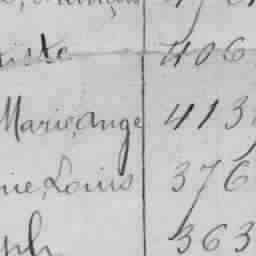 iste 406
Marie, ange 413
ie, Louis 376
ph 363